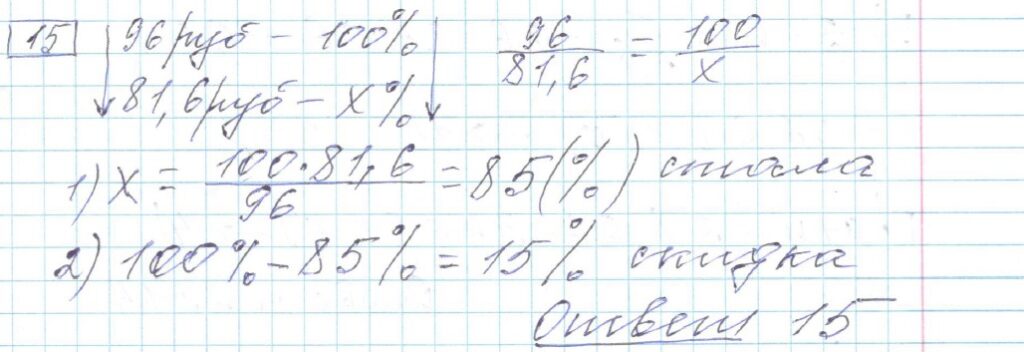 15 96 руб – 100% 96/81,6 = 100/x
81,6 руб – x%
1) x = 100·81,6/96 = 85(%) стала
2) 100% – 85% = 15% скидка
Ответ 15